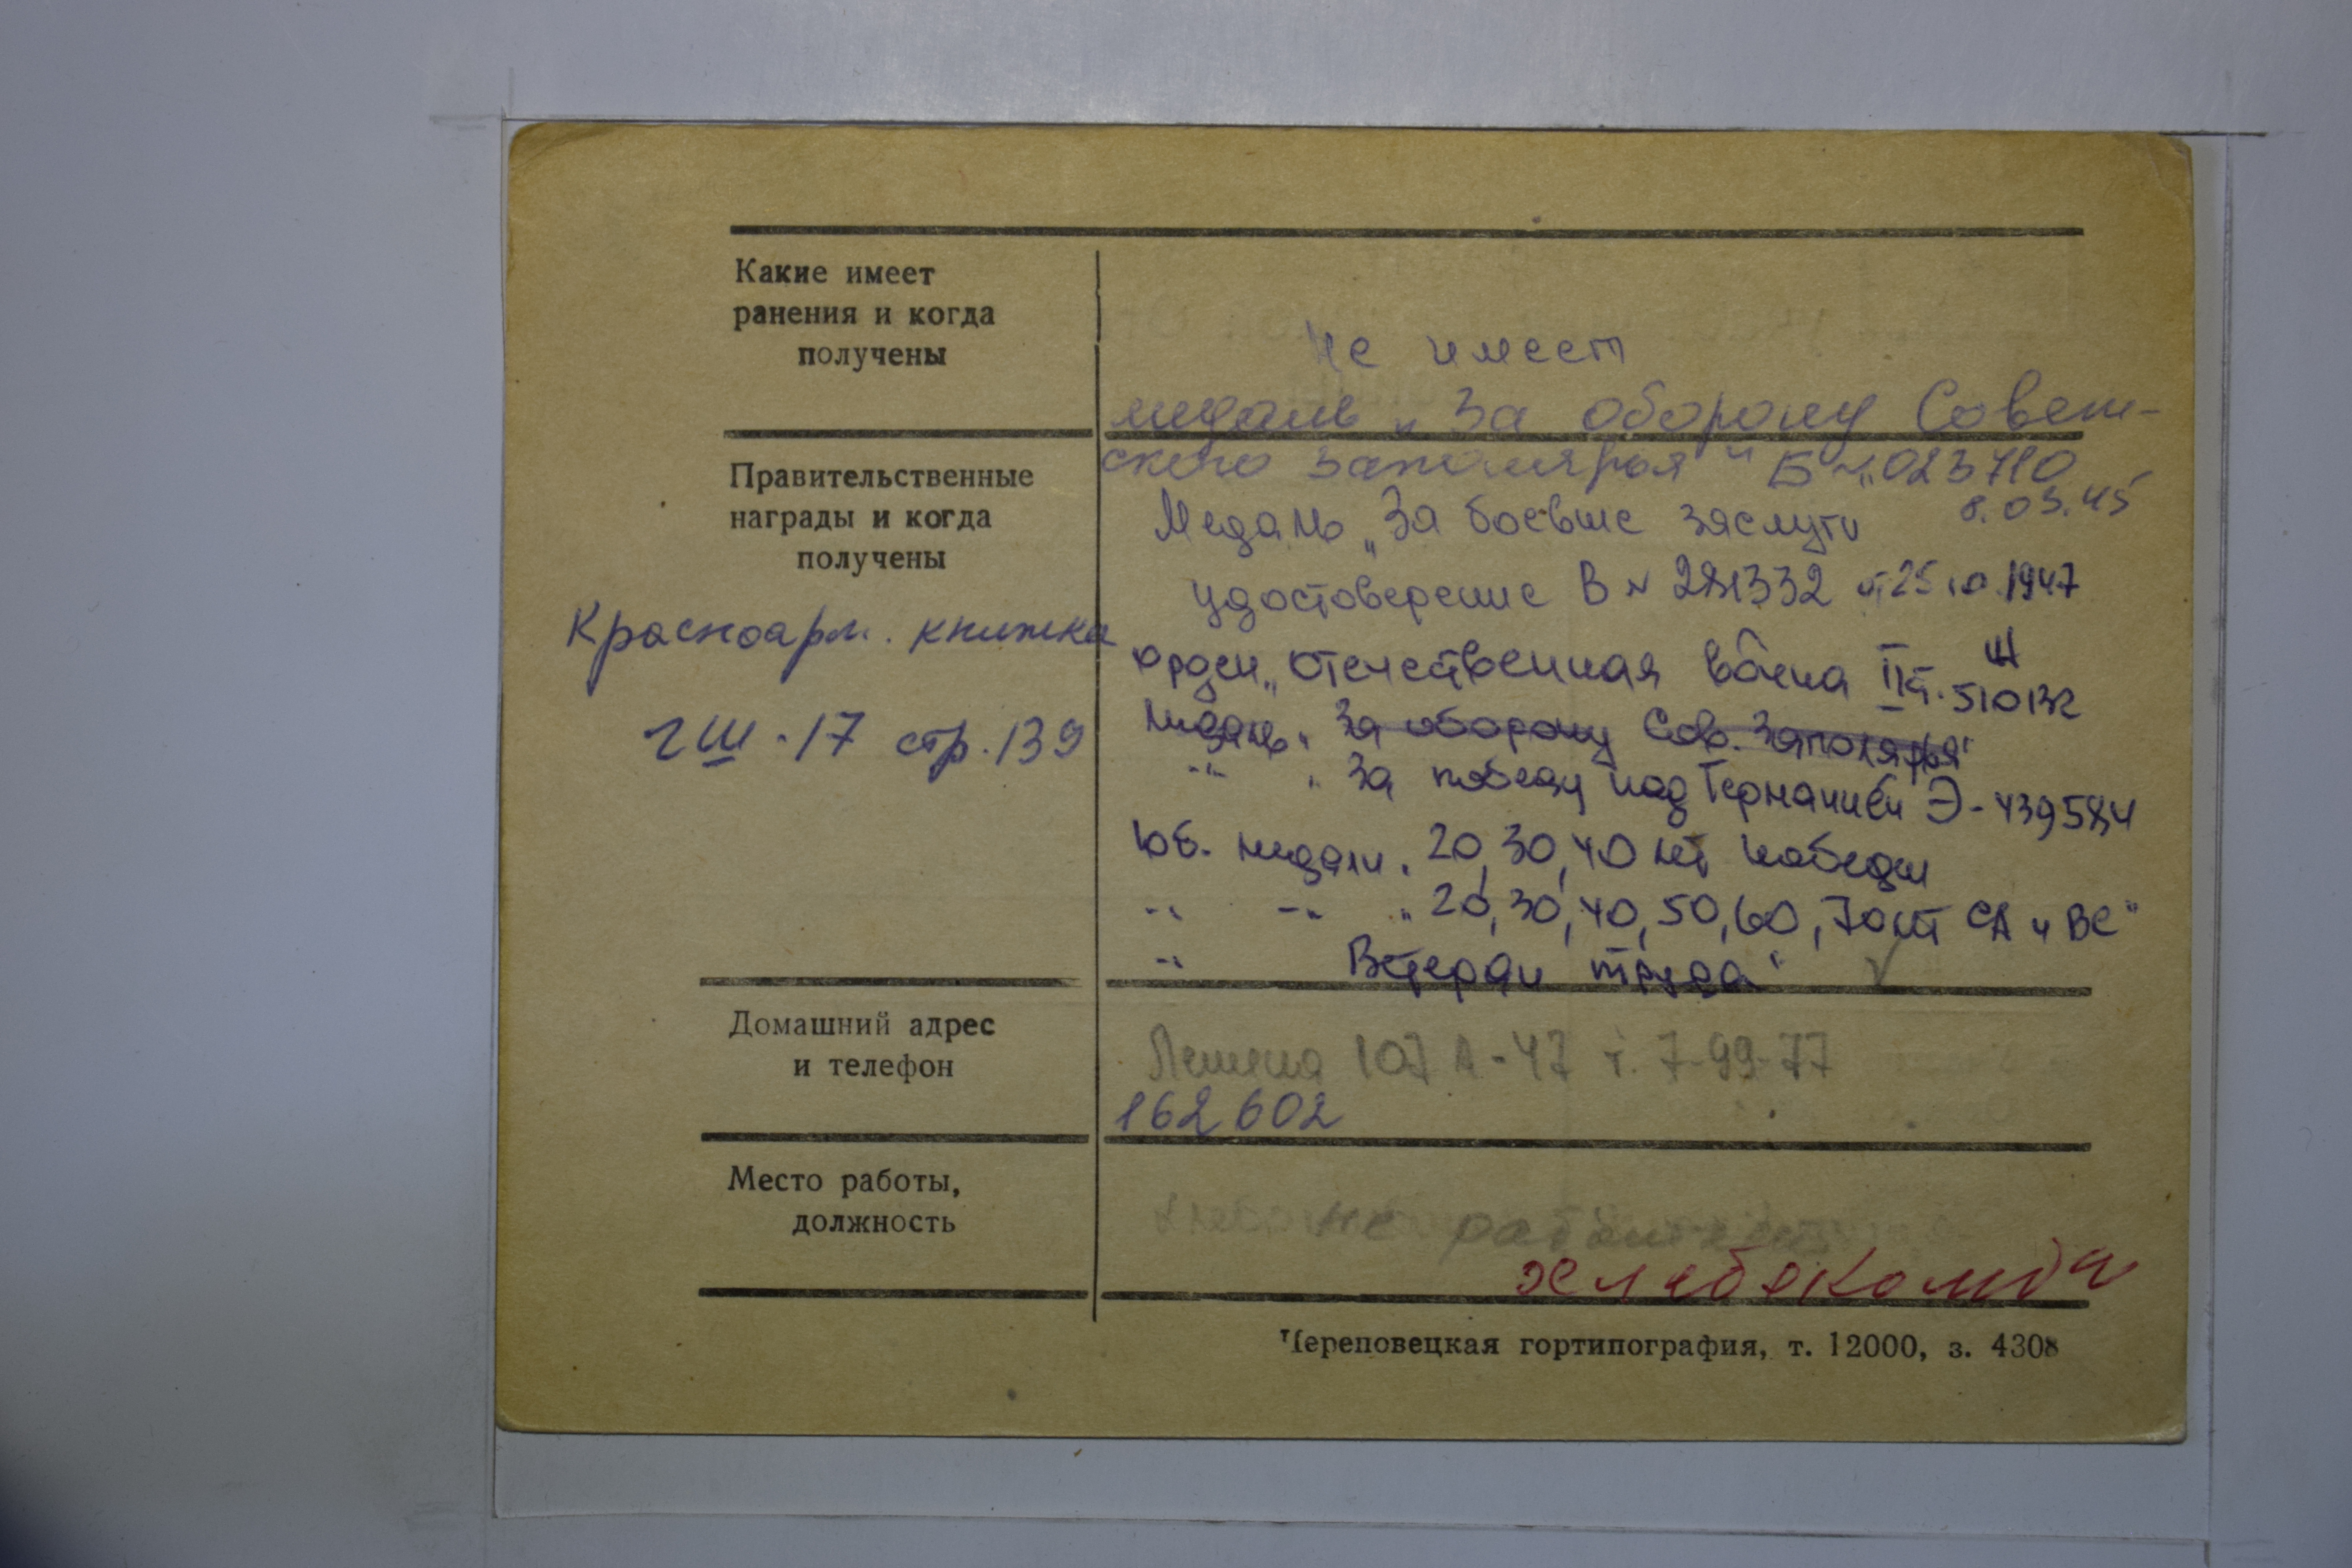 Какие имеет
ранения и когда
получены
не имеет
медаль „За оборону Совет-
ского Заполярья" Б № 023710
8.03.45
Правительственные
награды и когда
получены
Медаль „За боевые заслуги
удостоверение В № 281332 от 25.10.1947
Красноарм. книжка
орден „Отечественная война II ст. 510132
Медаль „За оборону Сов. Заполярья"
-"- „За победу над Германией Э-439584
2Ш-17 стр.139
Юб. медали „20, 30, 40 лет Победы
-"- -"- „20, 30, 40, 50, 60, 70 лет СА и ВС"
-"- Ветеран труда"
Домашний адрес
и телефон
Ленина 107 А-47 т. 7-99-77
162602
Место работы,
должность
не работает
Череповецкая гортипография, т. 12000, з. 4308